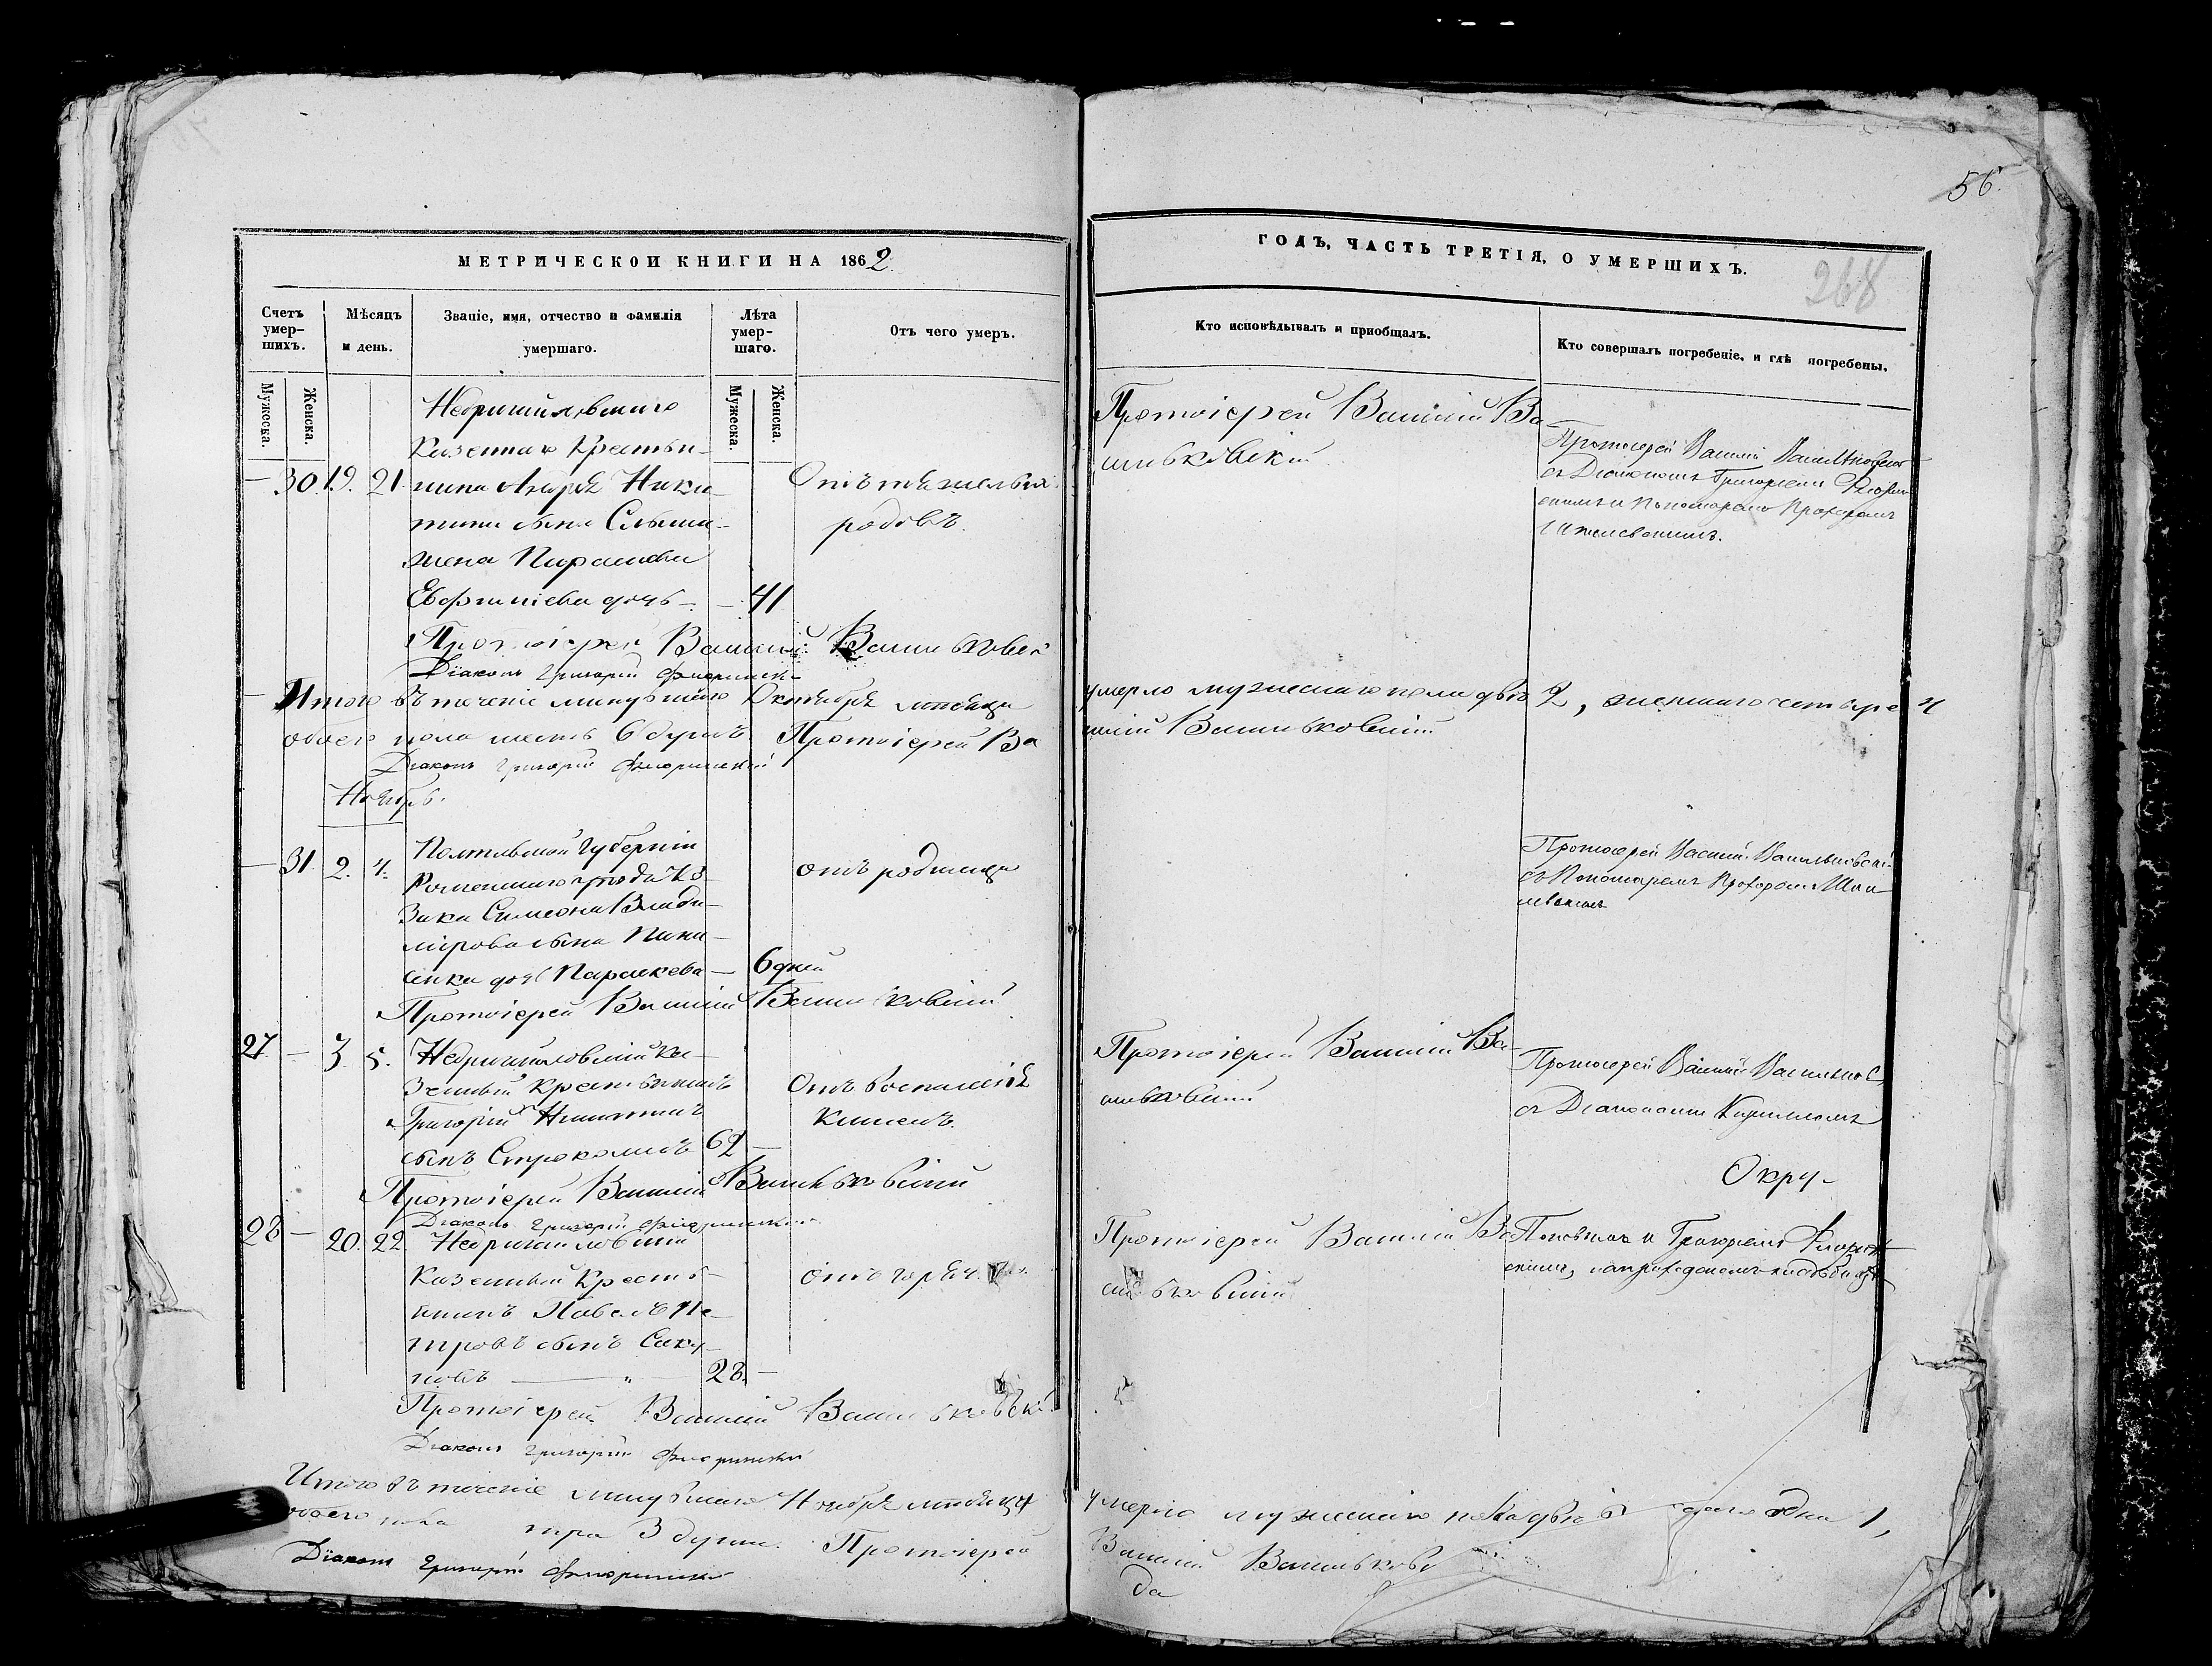 56.
МЕТРИЧЕСКОЙ КНИГИ НА 1862
ГОДЪ, ЧАСТЬ ТРЕТІЯ, О УМЕРШИХЪ.
268
Счетъ умер-
шихъ.
Мѣсяцъ
и день.
Званіе, имя, отчество и фамилія
умершаго.
Лѣта
умер-
шаго.
Отъ чего умеръ.
Кто исповѣдывалъ и приобщалъ.
Кто совершалъ погребеніе, и гдѣ погребены.
Мужеска.
Женска.
Мужеска.
Женска.
Недригайловскаго
Казеннаго Крестья-
— 30. 19. 21. нина Андрѣя Ники-
тина сына
жена Параскева
дочь — — 41
Отъ тяжелыхъ
родовъ.
Протоіерей Василій Ва-
сильковскій
Протоіерей Василій Васильковскій
съ Діакономъ Григоріемъ Флорин-
скимъ и Пономаремъ Прохоромъ
Протоіерей Василій Васильковскій
Діаконъ Григорій Флоринскій
Итого въ теченіе минувшаго Октября мѣсяца
умерло мужескаго пола двѣ 2, женскаго четыре 4
обоего пола шесть 6 душъ. Протоіерей Ва
силій Васильковскій
Діаконъ Григорій Флоринскій
Ноябрь.
— 31. 2. 4. Полтавской Губерніи
Роменскаго уѣзда Ка-
зака Симеона Влади-
мірова сына Пана-
сенка дочь Параскева — 6 дней
отъ родимца
Протоіерей Василій Васильковскій
съ Пономаремъ Прохоромъ
Протоіерей Василій Васильковскій
27 — 3. 5. Недригайловскій Ка-
зенный Крестьянинъ
Григорій Никитинъ
сынъ 62 —
Отъ воспаленія
кишекъ.
Протоіерей Василій Ва-
сильковскій
Протоіерей Василій
съ Діакономъ Кирилломъ
Окру-
Протоіерей Василій Васильковскій
Діаконъ Григорій Флоринскій
28 — 20. 22. Недригайловскій
Казенный Кресть-
янинъ Павелъ Пе-
тровъ сынъ Саку-
новъ — „ 28. —
отъ горяч.
Протоіерей Василій Ва
сильковскій
Поповымъ и Григоріемъ Флорин-
скимъ, на приходскомъ кладбищѣ
Протоіерей Василій Васильковскій
Діаконъ Григорій Флоринскій
Итого въ теченіе минувшаго Ноября мѣсяца
умерло мужескаго пола двѣ одна 1,
обоего пола три 3 души. Протоіерей
Василій Васильковс
Діаконъ Григорій Флоринскій
да